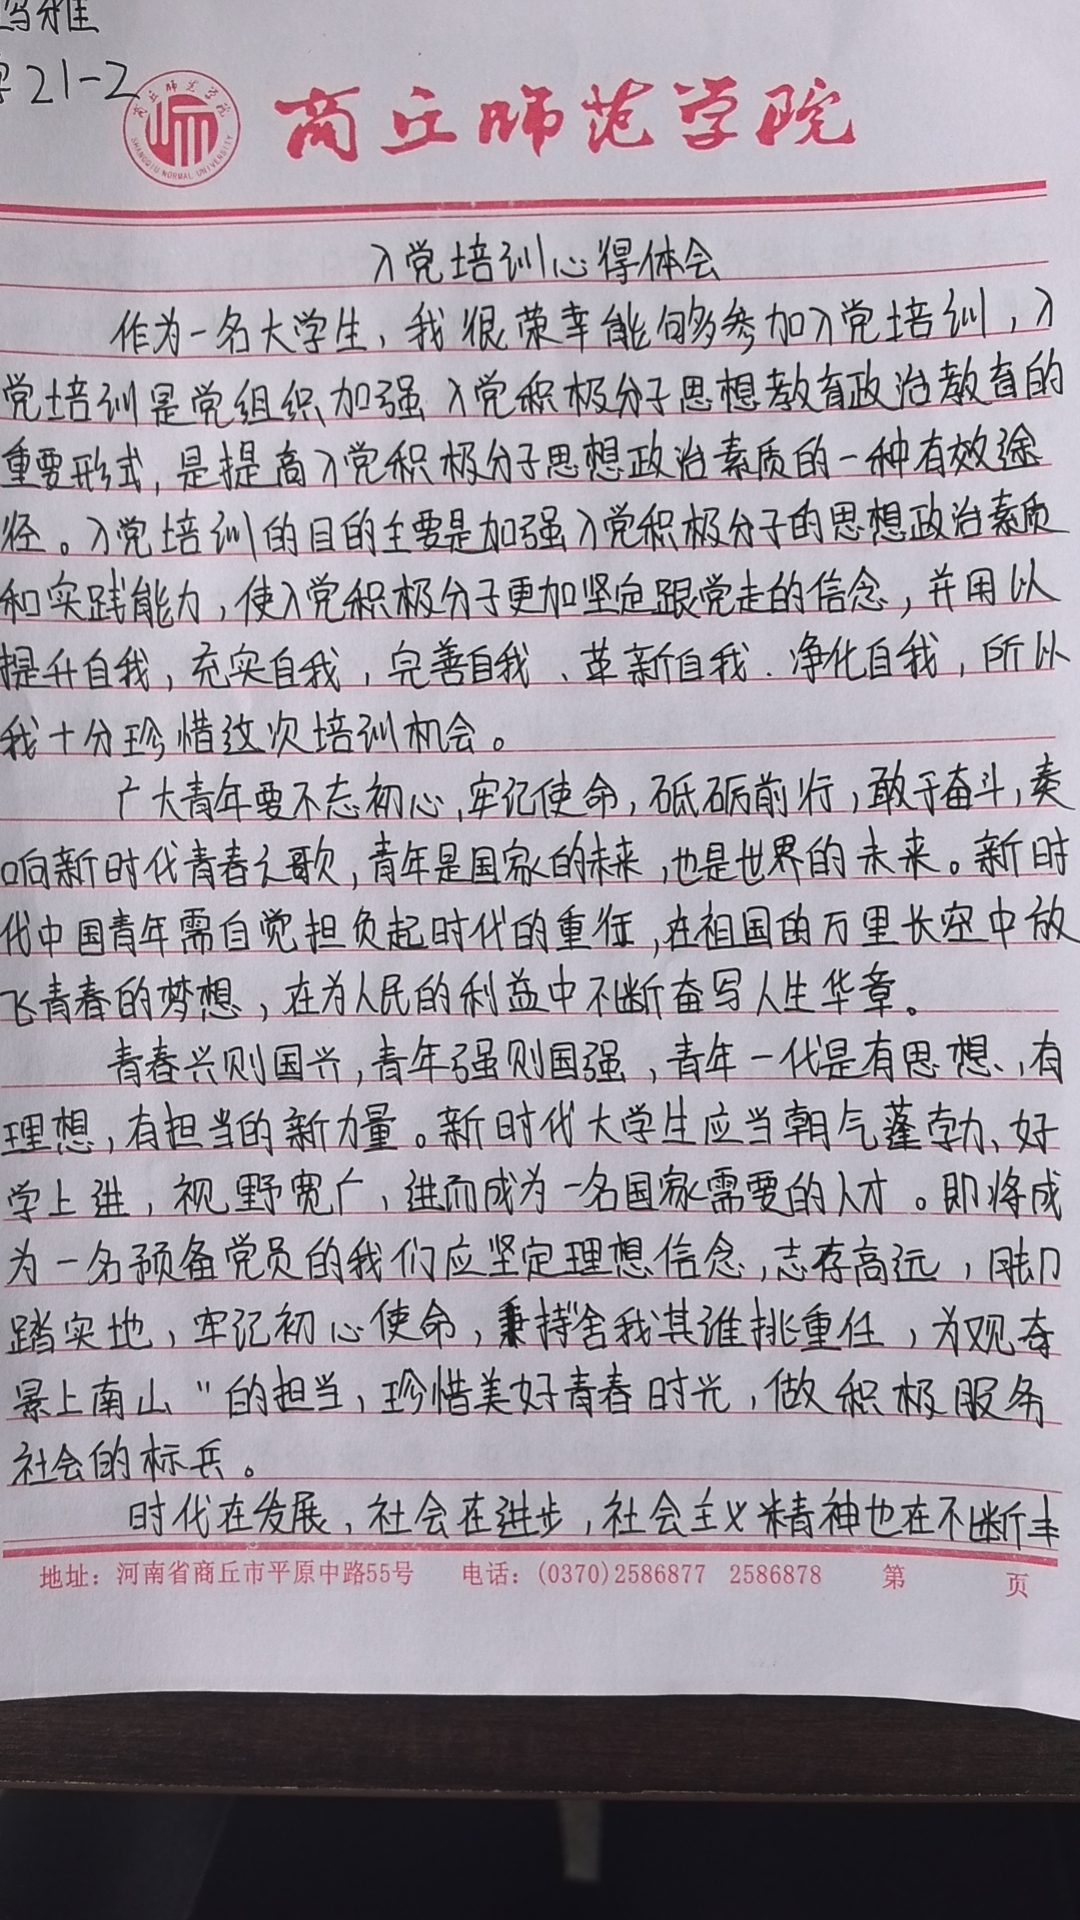 雅
21-2
商丘师范学院
SHANGQIU NORMAL UNIVERSITY
商丘师范学院
入党培训心得体会
作为一名大学生，我很荣幸能够参加入党培训，入
党培训是党组织加强入党积极分子思想教育政治教育的
重要形式，是提高入党积极分子思想政治素质的一种有效途
径。入党培训的目的主要是加强入党积极分子的思想政治素质
和实践能力，使入党积极分子更加坚定跟党走的信念，并用以
提升自我，充实自我，完善自我、革新自我、净化自我，所以
我十分珍惜这次培训机会。
广大青年要不忘初心，牢记使命，砥砺前行，敢于奋斗，奏
响新时代青春之歌，青年是国家的未来，也是世界的未来。新时
代中国青年需自觉担负起时代的重任，在祖国的万里长空中放
飞青春的梦想，在为人民的利益中不断奋写人生华章。
青春兴则国兴，青年强则国强，青年一代是有思想、有
理想，有担当的新力量。新时代大学生应当朝气蓬勃、好
学上进，视野宽广，进而成为一名国家需要的人才。即将成
为一名预备党员的我们应坚定理想信念，志存高远，脚
踏实地，牢记初心使命，秉持舍我其谁挑重任，为观奇
景上南山”的担当，珍惜美好青春时光，做积极服务
社会的标兵。
时代在发展，社会在进步，社会主义精神也在不断丰
地址：河南省商丘市平原中路55号 电话：(0370)2586877 2586878 第 页